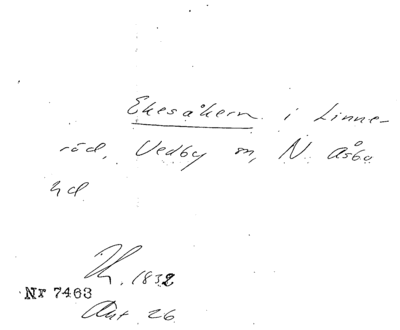 Ekesåkern i Linne-
röd, Vedby sn, N. Åsbo
hd
1832
Nr 7463
Akt 26